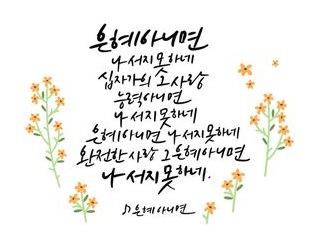 은혜아니면
나 서지 못하네
십자가의 그 사랑
능력아니면
나 서지 못하네
은혜아니면 나 서지 못하네
완전한 사랑 그 은혜아니면
나 서지 못하네.
♫ 은혜 아니면